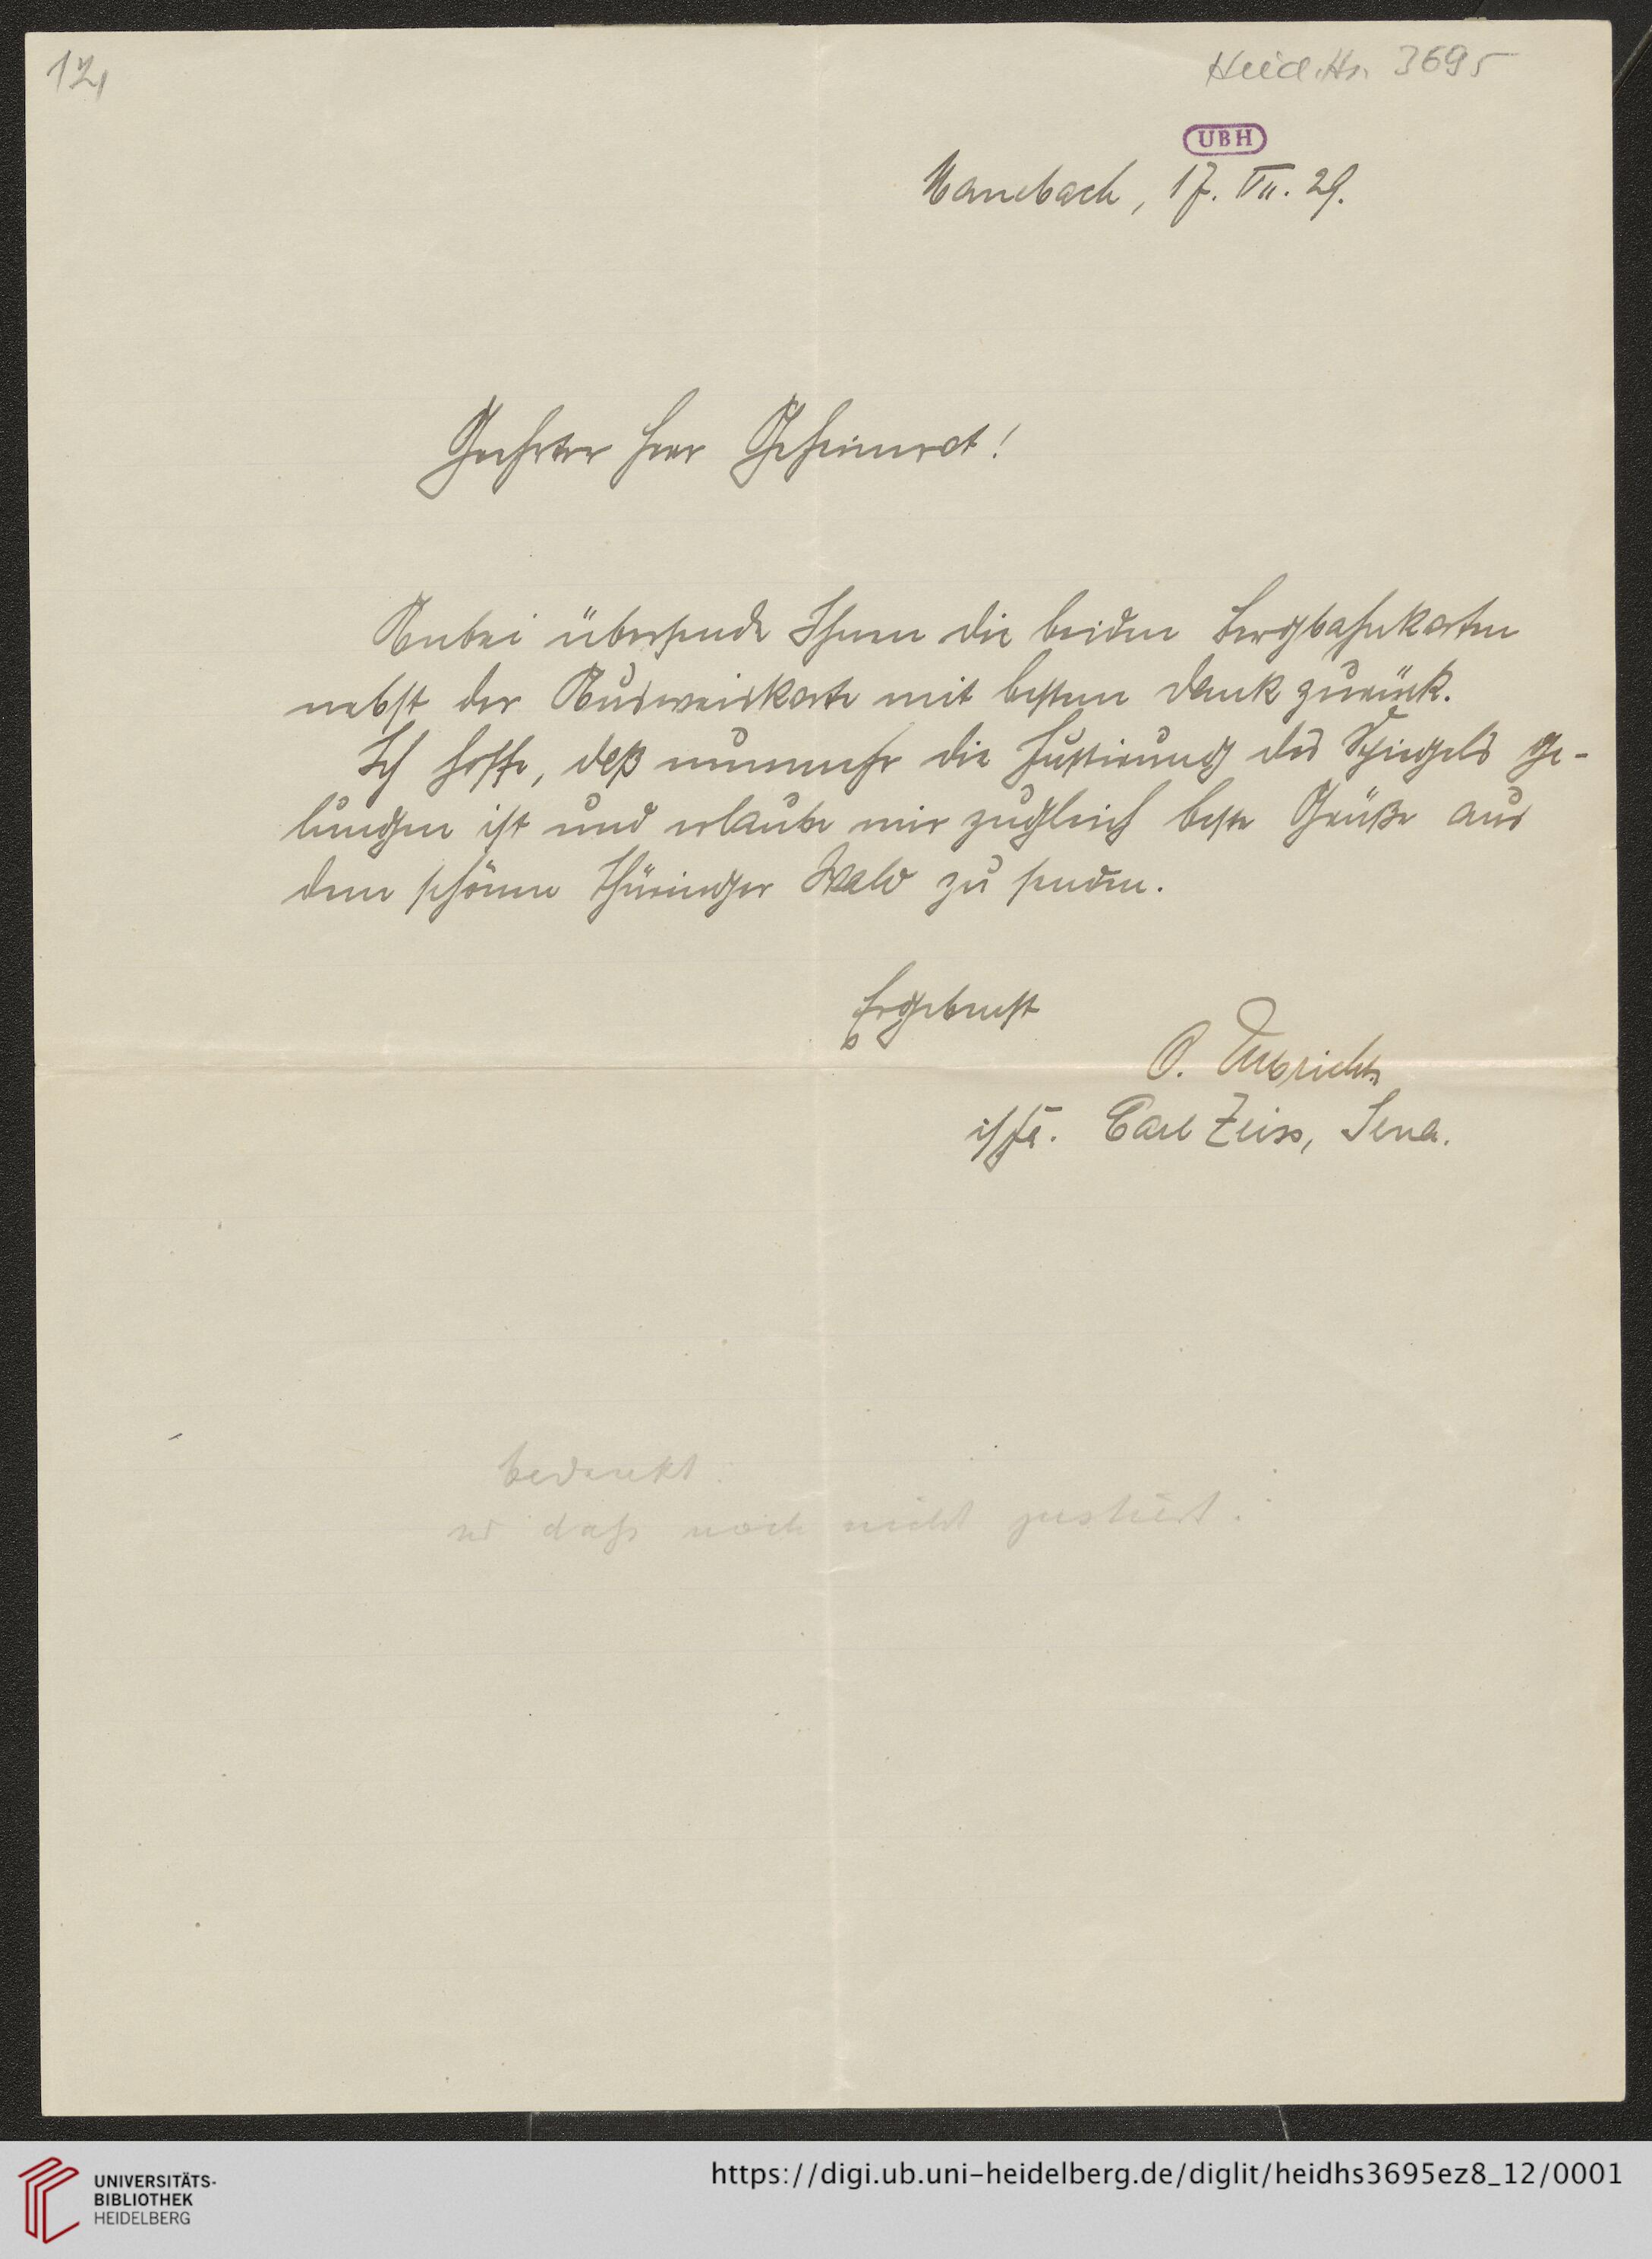 12,
Heid. Hs. 3695
UBH
Manebach, 17. VII. 29.
Geehrter Herr Geheimrat!
Anbei übersende Ihnen die beiden Bergbahnkarten
nebst der Ausweiskarte mit bestem Dank zurück.
Ich hoffe, daß nunmehr die Justierung des Spiegels ge-
lungen ist und erlaube mir zugleich beste Grüße aus
dem schönen Thüringer Wald zu senden.
Ergebenst
O.
i/Fa. Carl Zeiss, Jena.
bedankt
daß noch nicht justiert.
UNIVERSITÄTS-
BIBLIOTHEK
HEIDELBERG
https://digi.ub.uni-heidelberg.de/diglit/heidhs3695ez8_12/0001